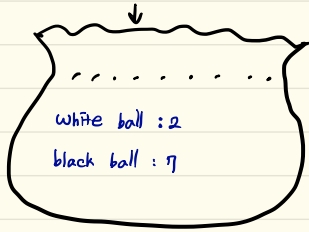 white ball : 2
black ball : 7